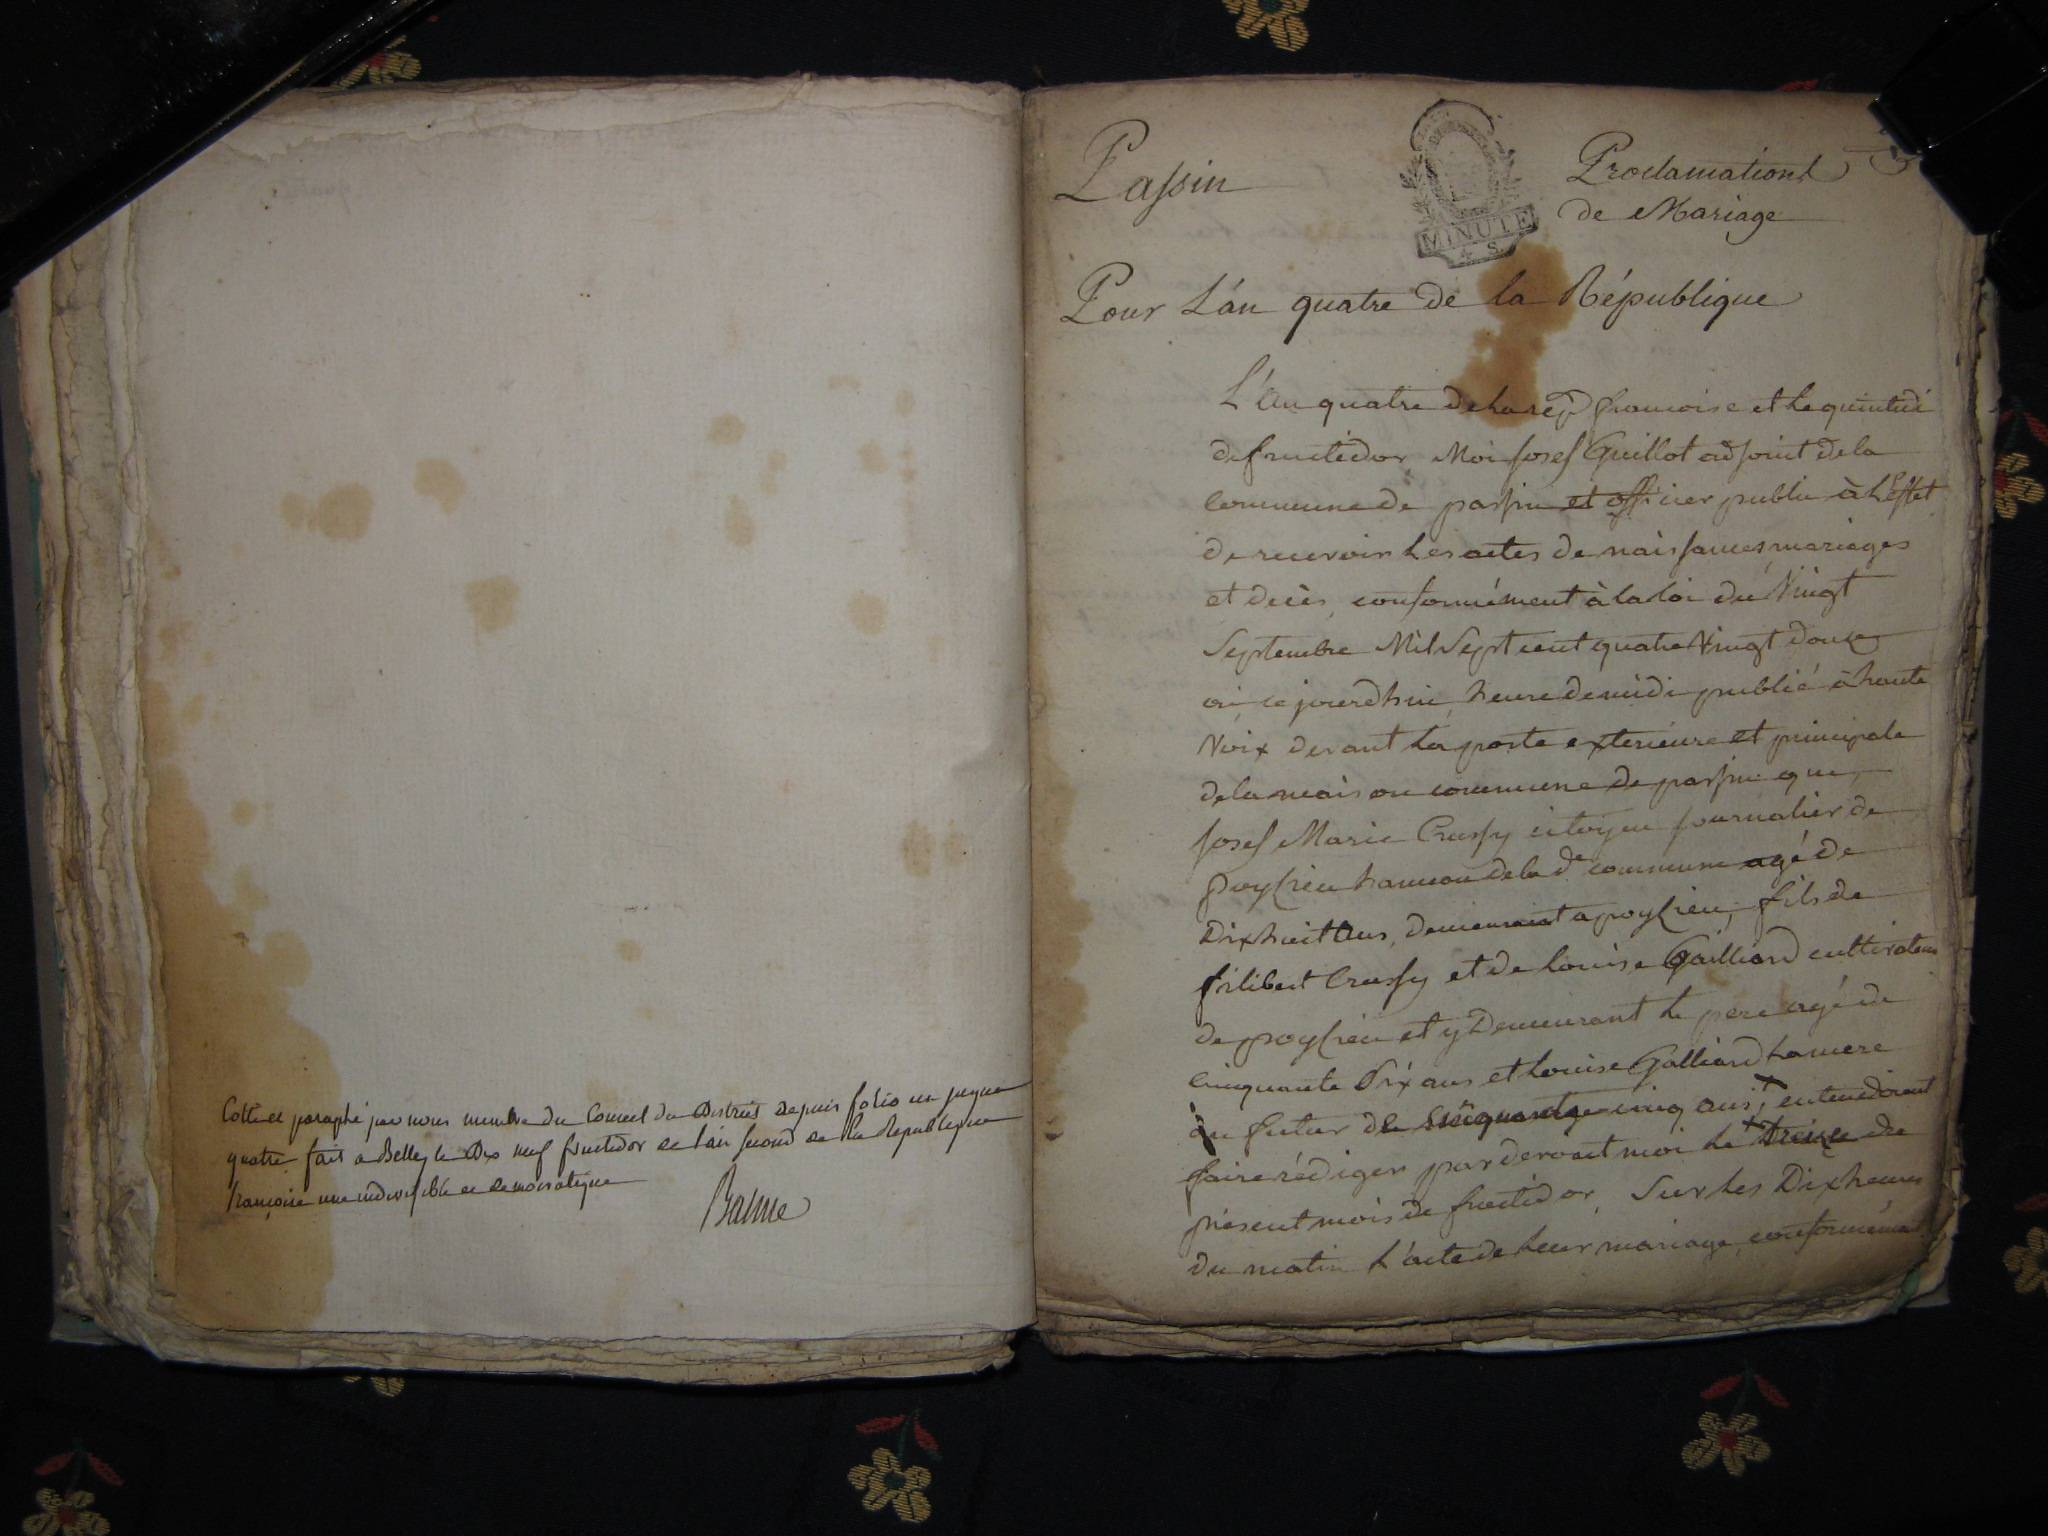 Cotté et paraphé par nous membre du Conseil du District depuis folio un jusque
quatre fait a Belley le Dix neuf fructidor de l'an second de la Republique
françoise une indivisible et democratique
Balme
Passin
MINUTE
4 S.
Proclamations
de Mariage
Pour L'an quatre de la République
L'an quatre de la rep francoise et le quintidi
de fructidor Moi Josef Guillot adjoint de la
commune de passin et officier public à l'effet
de recevoir les actes de naissances, mariages
et décès, conformément à la loi du Vingt
Septembre Mil Sept cent quatre Vingt douze
ai ce jourdhui, heure de midi publié à haute
Voix devant la porte exterieure et principale
de la maison commune de passin que
Josef Marie Crussy citoyen journalier de
poysieu hameau de la de commune agé de
Dix huit ans, demeurant a poysieu, fils de
filibert Crussy et de louise Galliard cultivateur
de poysieu et y Demeurant le pere agé de
cinquante Six ans et louise Galliard la mere
du futur de cinquante cinq ans, entendoient
faire rédiger par devant moi le treize de
présent mois de fructidor, Sur les Dix heures
du matin l'acte de leur mariage, conformément